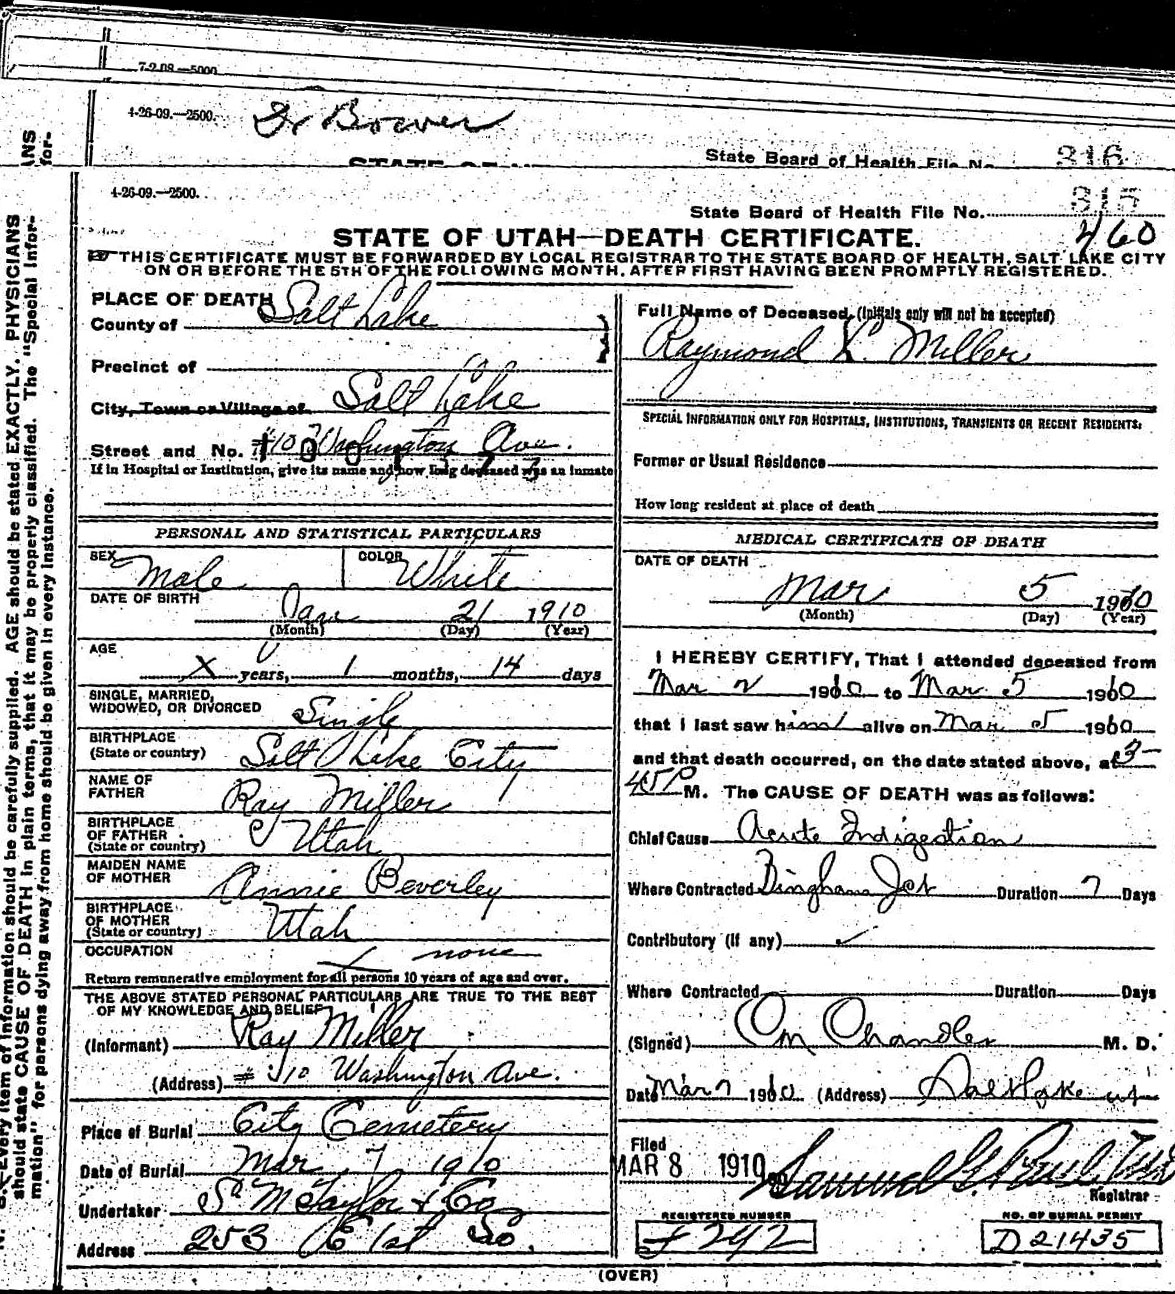 7-2-08.—5000
4-26-09.—2500. Dr Bower
State Board of Health File No. 316
4-26-09.—2500.
State Board of Health File No.
460
STATE OF UTAH—DEATH CERTIFICATE.
THIS CERTIFICATE MUST BE FORWARDED BY LOCAL REGISTRAR TO THE STATE BOARD OF HEALTH, SALT LAKE CITY
ON OR BEFORE THE 5TH OF THE FOLLOWING MONTH, AFTER FIRST HAVING BEEN PROMPTLY REGISTERED.
PLACE OF DEATH
County of Salt Lake
Precinct of
City, Town or Village of Salt Lake
Street and No. Washington Ave.
If in Hospital or Institution, give its name and how long deceased was an inmate
PERSONAL AND STATISTICAL PARTICULARS
SEX Male COLOR White
DATE OF BIRTH
Jan 21 1910
(Month) (Day) (Year)
AGE
X years, 1 months, 14 days
SINGLE, MARRIED,
WIDOWED, OR DIVORCED Single
BIRTHPLACE
(State or country) Salt Lake City
NAME OF
FATHER Ray Miller
BIRTHPLACE
OF FATHER
(State or country) Utah
MAIDEN NAME
OF MOTHER Annie Beverley
BIRTHPLACE
OF MOTHER
(State or country) Utah
OCCUPATION none
Return remunerative employment for all persons 10 years of age and over.
THE ABOVE STATED PERSONAL PARTICULARS ARE TRUE TO THE BEST
OF MY KNOWLEDGE AND BELIEF
(Informant) Ray Miller
(Address) Washington Ave.
Place of Burial City Cemetery
Date of Burial Mar 7 1910
Undertaker S. M. Taylor & Co
Address 253 E 1st So.
Full Name of Deceased, (Initials only will not be accepted)
Raymond L. Miller
SPECIAL INFORMATION ONLY FOR HOSPITALS, INSTITUTIONS, TRANSIENTS OR RECENT RESIDENTS:
Former or Usual Residence
How long resident at place of death
MEDICAL CERTIFICATE OF DEATH
DATE OF DEATH
Mar 5 1910
(Month) (Day) (Year)
I HEREBY CERTIFY, That I attended deceased from
Mar 2 1910 to Mar 5 1910
that I last saw him alive on Mar 5 1910
and that death occurred, on the date stated above, at 3-
45 P M. The CAUSE OF DEATH was as follows:
Chief Cause Acute Indigestion
Where Contracted Bingham Jct Duration 7 Days
Contributory (if any)
Where Contracted Duration Days
(Signed) Om Chandler M. D.
Date Mar 7 1910 (Address) Salt Lake ut
Filed
MAR 8 1910 Samuel G. Paul
Registrar
REGISTERED NUMBER NO. OF BURIAL PERMIT
F 292 D 21435
(OVER)
Every item of information should be carefully supplied. AGE should be stated EXACTLY. PHYSICIANS
should state CAUSE OF DEATH in plain terms, that it may be properly classified. The "Special Infor-
mation" for persons dying away from home should be given in every instance.